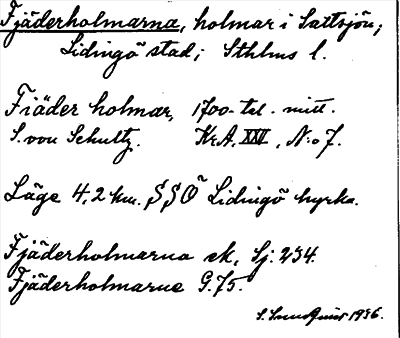 Fjäderholmarna, holmar i Saltsjön;
Lidingö stad; Sthlms l.
Fiäder holmar, 1700-tal. mitt.
S. von Schultz. KrA, XXV, N:o 7.
Läge 4,2 km. SSO Lidingö kyrka.
Fjäderholmarna ek, Sj. 234.
Fjäderholmarne G. 75.
1936.